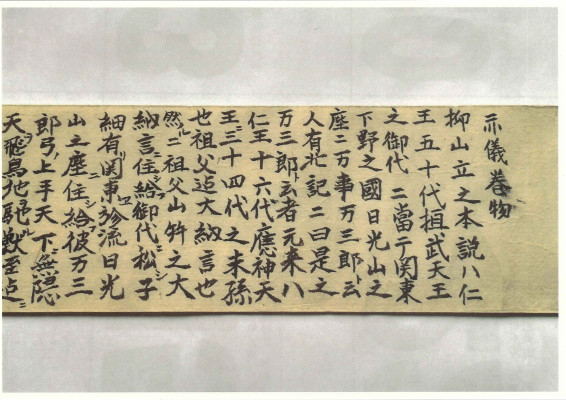 示儀巻物
抑山立之本説八仁
王五十代桓武天王
之御代ニ當テ関東
下野之國日光山之
座ニ万事万三郎ト云
人有此記ニ曰是之
万三郎ト云者元来八
仁王十六代應神天
王三十四代之末孫
也祖父迠大納言也
然ニ祖父山竹之大
納言住給御代ニ松子
細有関東流日光
山之座住給彼万三
郎弓上手天下無隠
天飛鳥地馳獣至迠ニ